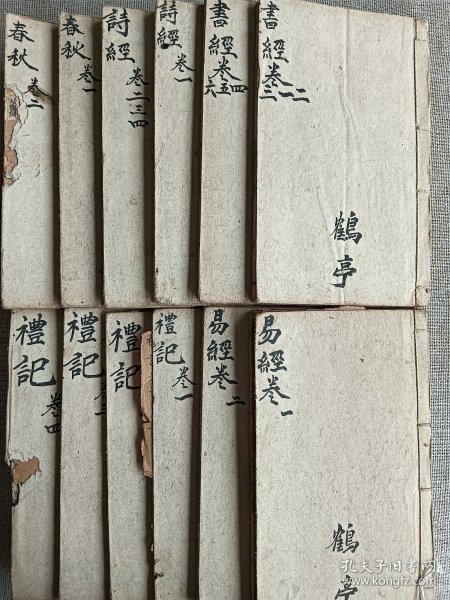 書經卷一二三
鶴亭
書經卷四五六
詩經卷一
詩經卷二三四
春秋卷一
春秋卷二
易經卷一
鶴亭
易經卷二
禮記卷一
禮記
禮記卷三
禮記卷四
孔夫子旧书网